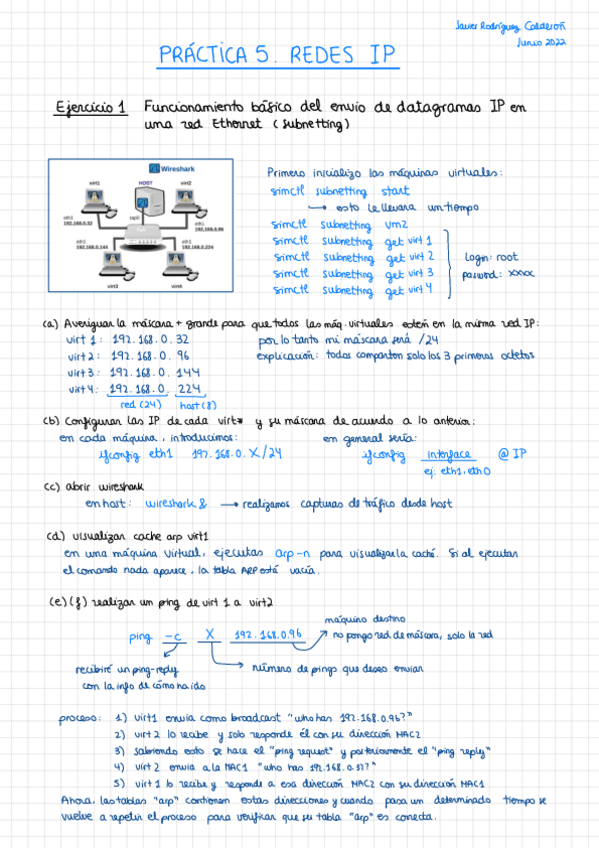 Javier Rodríguez Calderón
Junio 2022
PRÁCTICA 5. REDES IP
Ejercicio 1 Funcionamiento básico del envío de datagramas IP en
una red Ethernet (subnetting)
Wireshark
virt1
HOST
virt2
eth1
192.168.0.32
tap0
eth1
192.168.0.96
eth1
192.168.0.144
eth1
192.168.0.224
virt3
virt4
Primero inicializo las máquinas virtuales:
simctl subnetting start
→ esto le llevara un tiempo
simctl subnetting vm2
simctl subnetting get virt 1
simctl subnetting get virt 2
simctl subnetting get virt 3
simctl subnetting get virt 4
Login: root
password: xxxx
(a) Averiguar la máscara + grande para que todas las máq. virtuales estén en la misma red IP:
virt 1: 192.168.0.32
virt 2: 192.168.0.96
virt 3: 192.168.0.144
virt 4: 192.168.0.224
red (24) host (8)
por lo tanto mi máscara será /24
explicación: todos comparten solo los 3 primeros octetos
(b) Configurar las IP de cada virt* y su máscara de acuerdo a lo anterior:
en cada máquina, introducimos:
ifconfig eth1 192.168.0.X/24
en general sería:
ifconfig interface @IP
ej: eth1, eth0
(c) abrir wireshark
en host: wireshark & → realizamos capturas de tráfico desde host
(d) visualizar cache arp virt1
en una máquina virtual, ejecutas arp-n para visualizar la caché. Si al ejecutar
el comando nada aparece, la tabla ARP está vacía.
(e)(f) realizar un ping de virt 1 a virt2
ping -c X 192.168.0.96
máquina destino
no pongo red de máscara, solo la red
recibiré un ping-reply
con la info de cómo ha ido
número de pings que deseo enviar
proceso: 1) virt1 envía como broadcast "who has 192.168.0.96?"
2) virt 2 lo recibe y solo responde él con su dirección MAC2
3) sabiendo esto se hace el "ping request" y posteriormente el "ping reply"
4) virt 2 envía a la MAC1 "who has 192.168.0.32?"
5) virt 1 lo recibe y responde a esa dirección MAC2 con su dirección MAC1
Ahora, las tablas "arp" contienen estas direcciones y cuando pasa un determinado tiempo se
vuelve a repetir el proceso para verificar que su tabla "arp" es correcta.